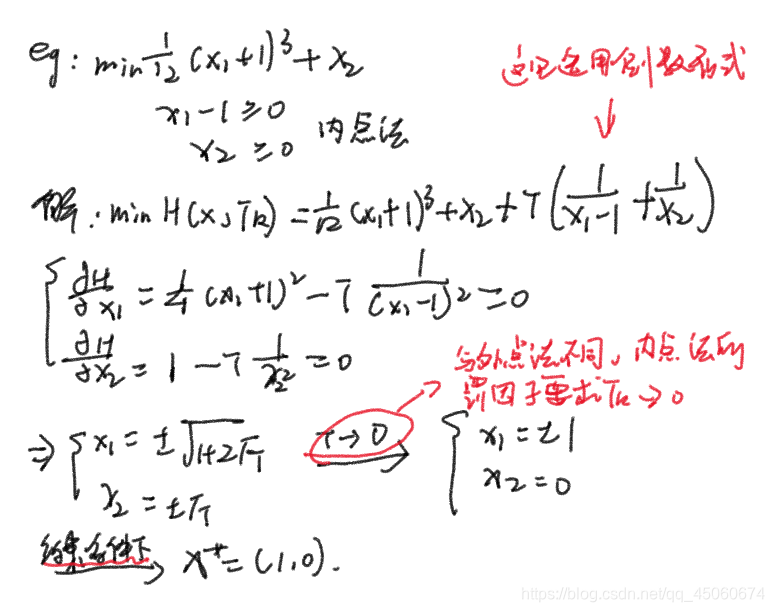 eg: min 1/12 (x₁+1)³ + x₂
这里运用倒数形式
x₁-1 ≥ 0
x₂ ≥ 0 内点法
解: min H(x, T_k) = 1/12 (x₁+1)³ + x₂ + T (1/(x₁-1) + 1/x₂)
{ ∂H/∂x₁ = 1/4 (x₁+1)² - T 1/(x₁-1)² = 0
∂H/∂x₂ = 1 - T 1/x₂² = 0
与外点法不同, 内点法的
罚因子要求 T_k → 0
⇒ { x₁ = ±√(1+2√T)
x₂ = ±√T
T→0
{ x₁ = ±1
x₂ = 0
约束条件下 x* = (1,0).
https://blog.csdn.net/qq_45060674